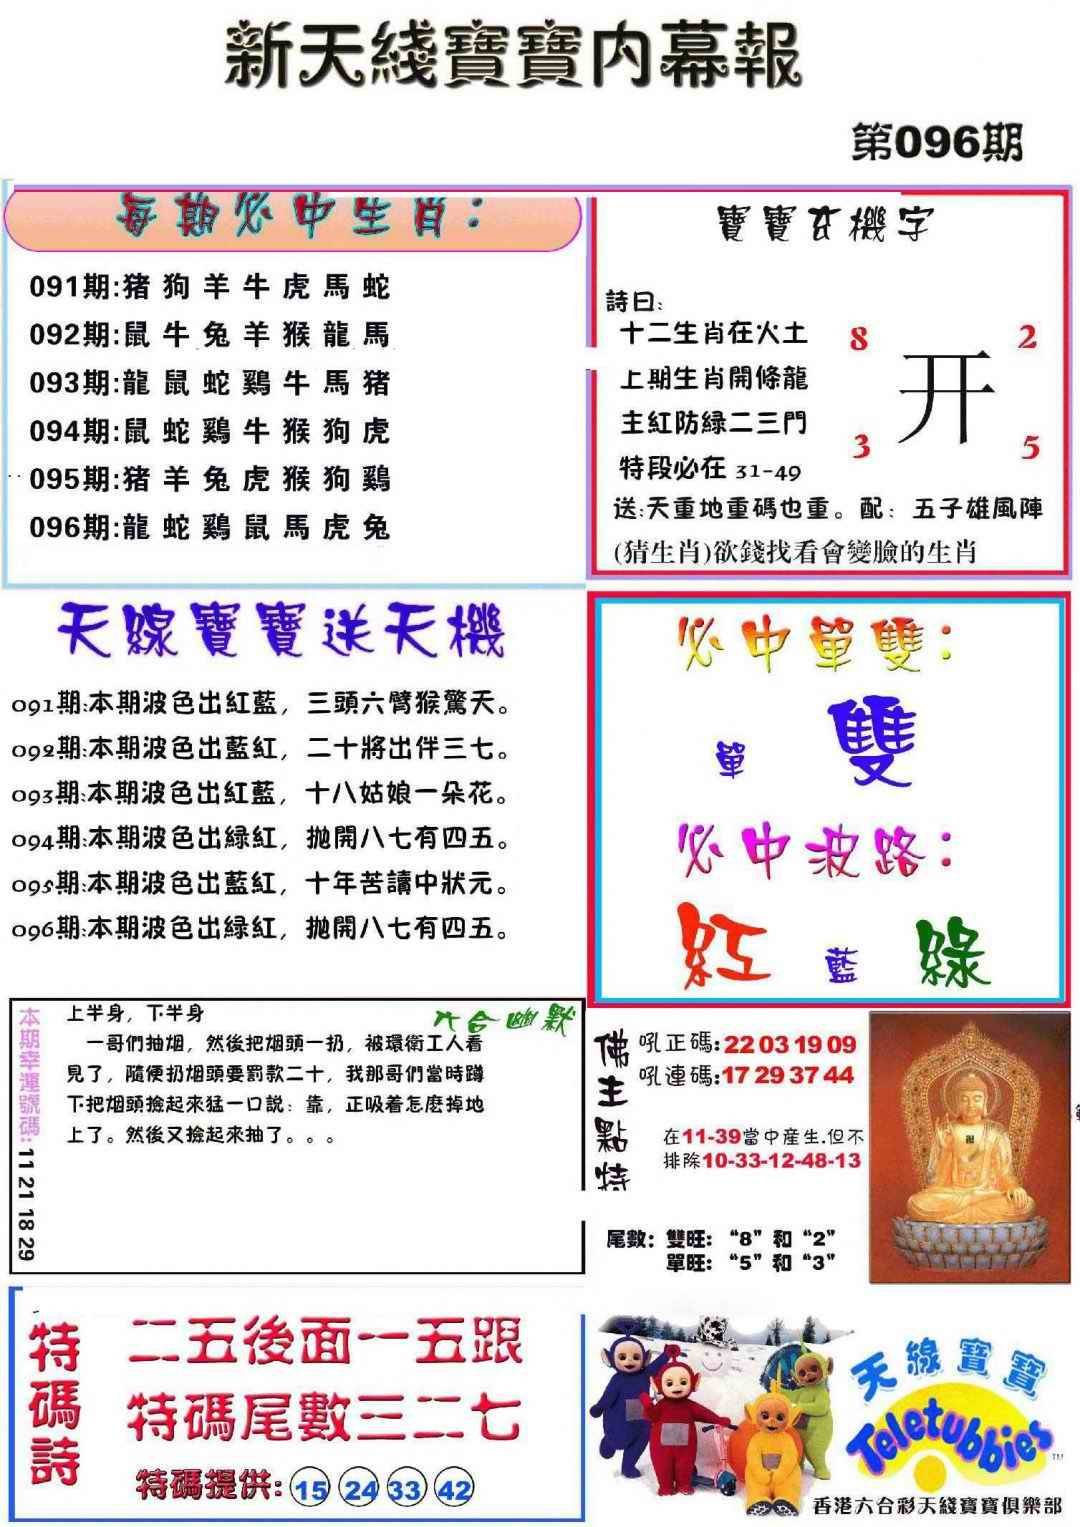 新天綫寶寶内幕報
第096期
每期必中生肖:
091期:猪狗羊牛虎馬蛇
092期:鼠牛兔羊猴龍馬
093期:龍鼠蛇鷄牛馬猪
094期:鼠蛇鷄牛猴狗虎
095期:猪羊兔虎猴狗鷄
096期:龍蛇鷄鼠馬虎兔
寶寶玄機字
詩曰:
十二生肖在火土
上期生肖開條龍
主紅防緑二三門
特段必在 31-49
8 2
开
3 5
送:天重地重碼也重。配:五子雄風陣
(猜生肖)欲錢找看會變臉的生肖
天線寶寶送天機
091期:本期波色出紅藍,三頭六臂猴驚天。
092期:本期波色出藍紅,二十將出伴三七。
093期:本期波色出紅藍,十八姑娘一朵花。
094期:本期波色出緑紅,拋開八七有四五。
095期:本期波色出藍紅,十年苦讀中狀元。
096期:本期波色出緑紅,拋開八七有四五。
必中單雙:
單 雙
必中波路:
紅 藍 綠
本期幸運號碼:11 21 18 29
六合幽默
上半身,下半身
一哥們抽烟,然後把烟頭一扔,被環衛工人看
見了,隨便扔烟頭要罰款二十,我那哥們當時蹲
下把烟頭撿起來猛一口説:靠,正吸着怎麽掉地
上了。然後又撿起來抽了。。。
佛主點特
吼正碼:22 03 19 09
吼連碼:17 29 37 44
在11-39當中産生.但不
排除10-33-12-48-13
尾數:雙旺:“8”和“2”
單旺:“5”和“3”
特碼詩
二五後面一五跟
特碼尾數三二七
特碼提供:15 24 33 42
天線寶寶
Teletubbies
TM
香港六合彩天綫寶寶俱樂部